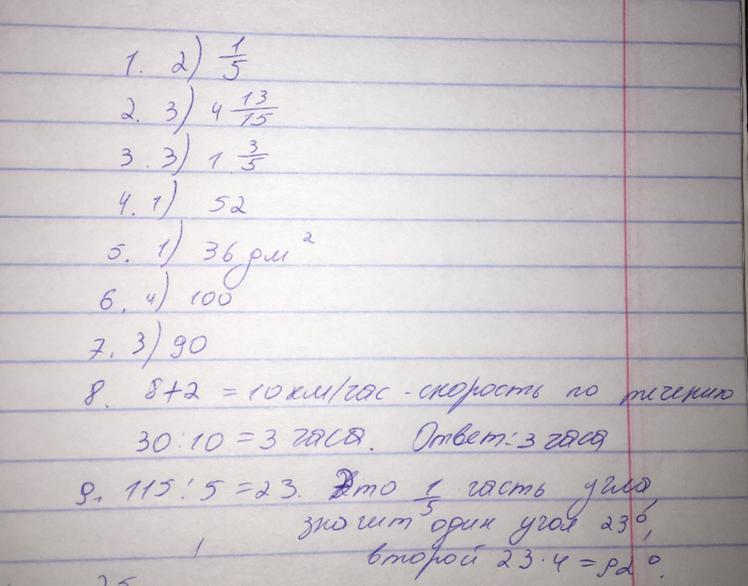 1. 2) 1/5
2. 3) 4 13/15
3. 3) 1 3/5
4. 1) 52
5. 1) 36 дм²
6. 4) 100
7. 3) 90
8. 8+2 = 10 км/час - скорость по течению
30:10 = 3 часа. Ответ: 3 часа
9. 115:5 = 23. Это 1/5 часть угла,
значит один угол 23°,
второй 23·4 = 92°.